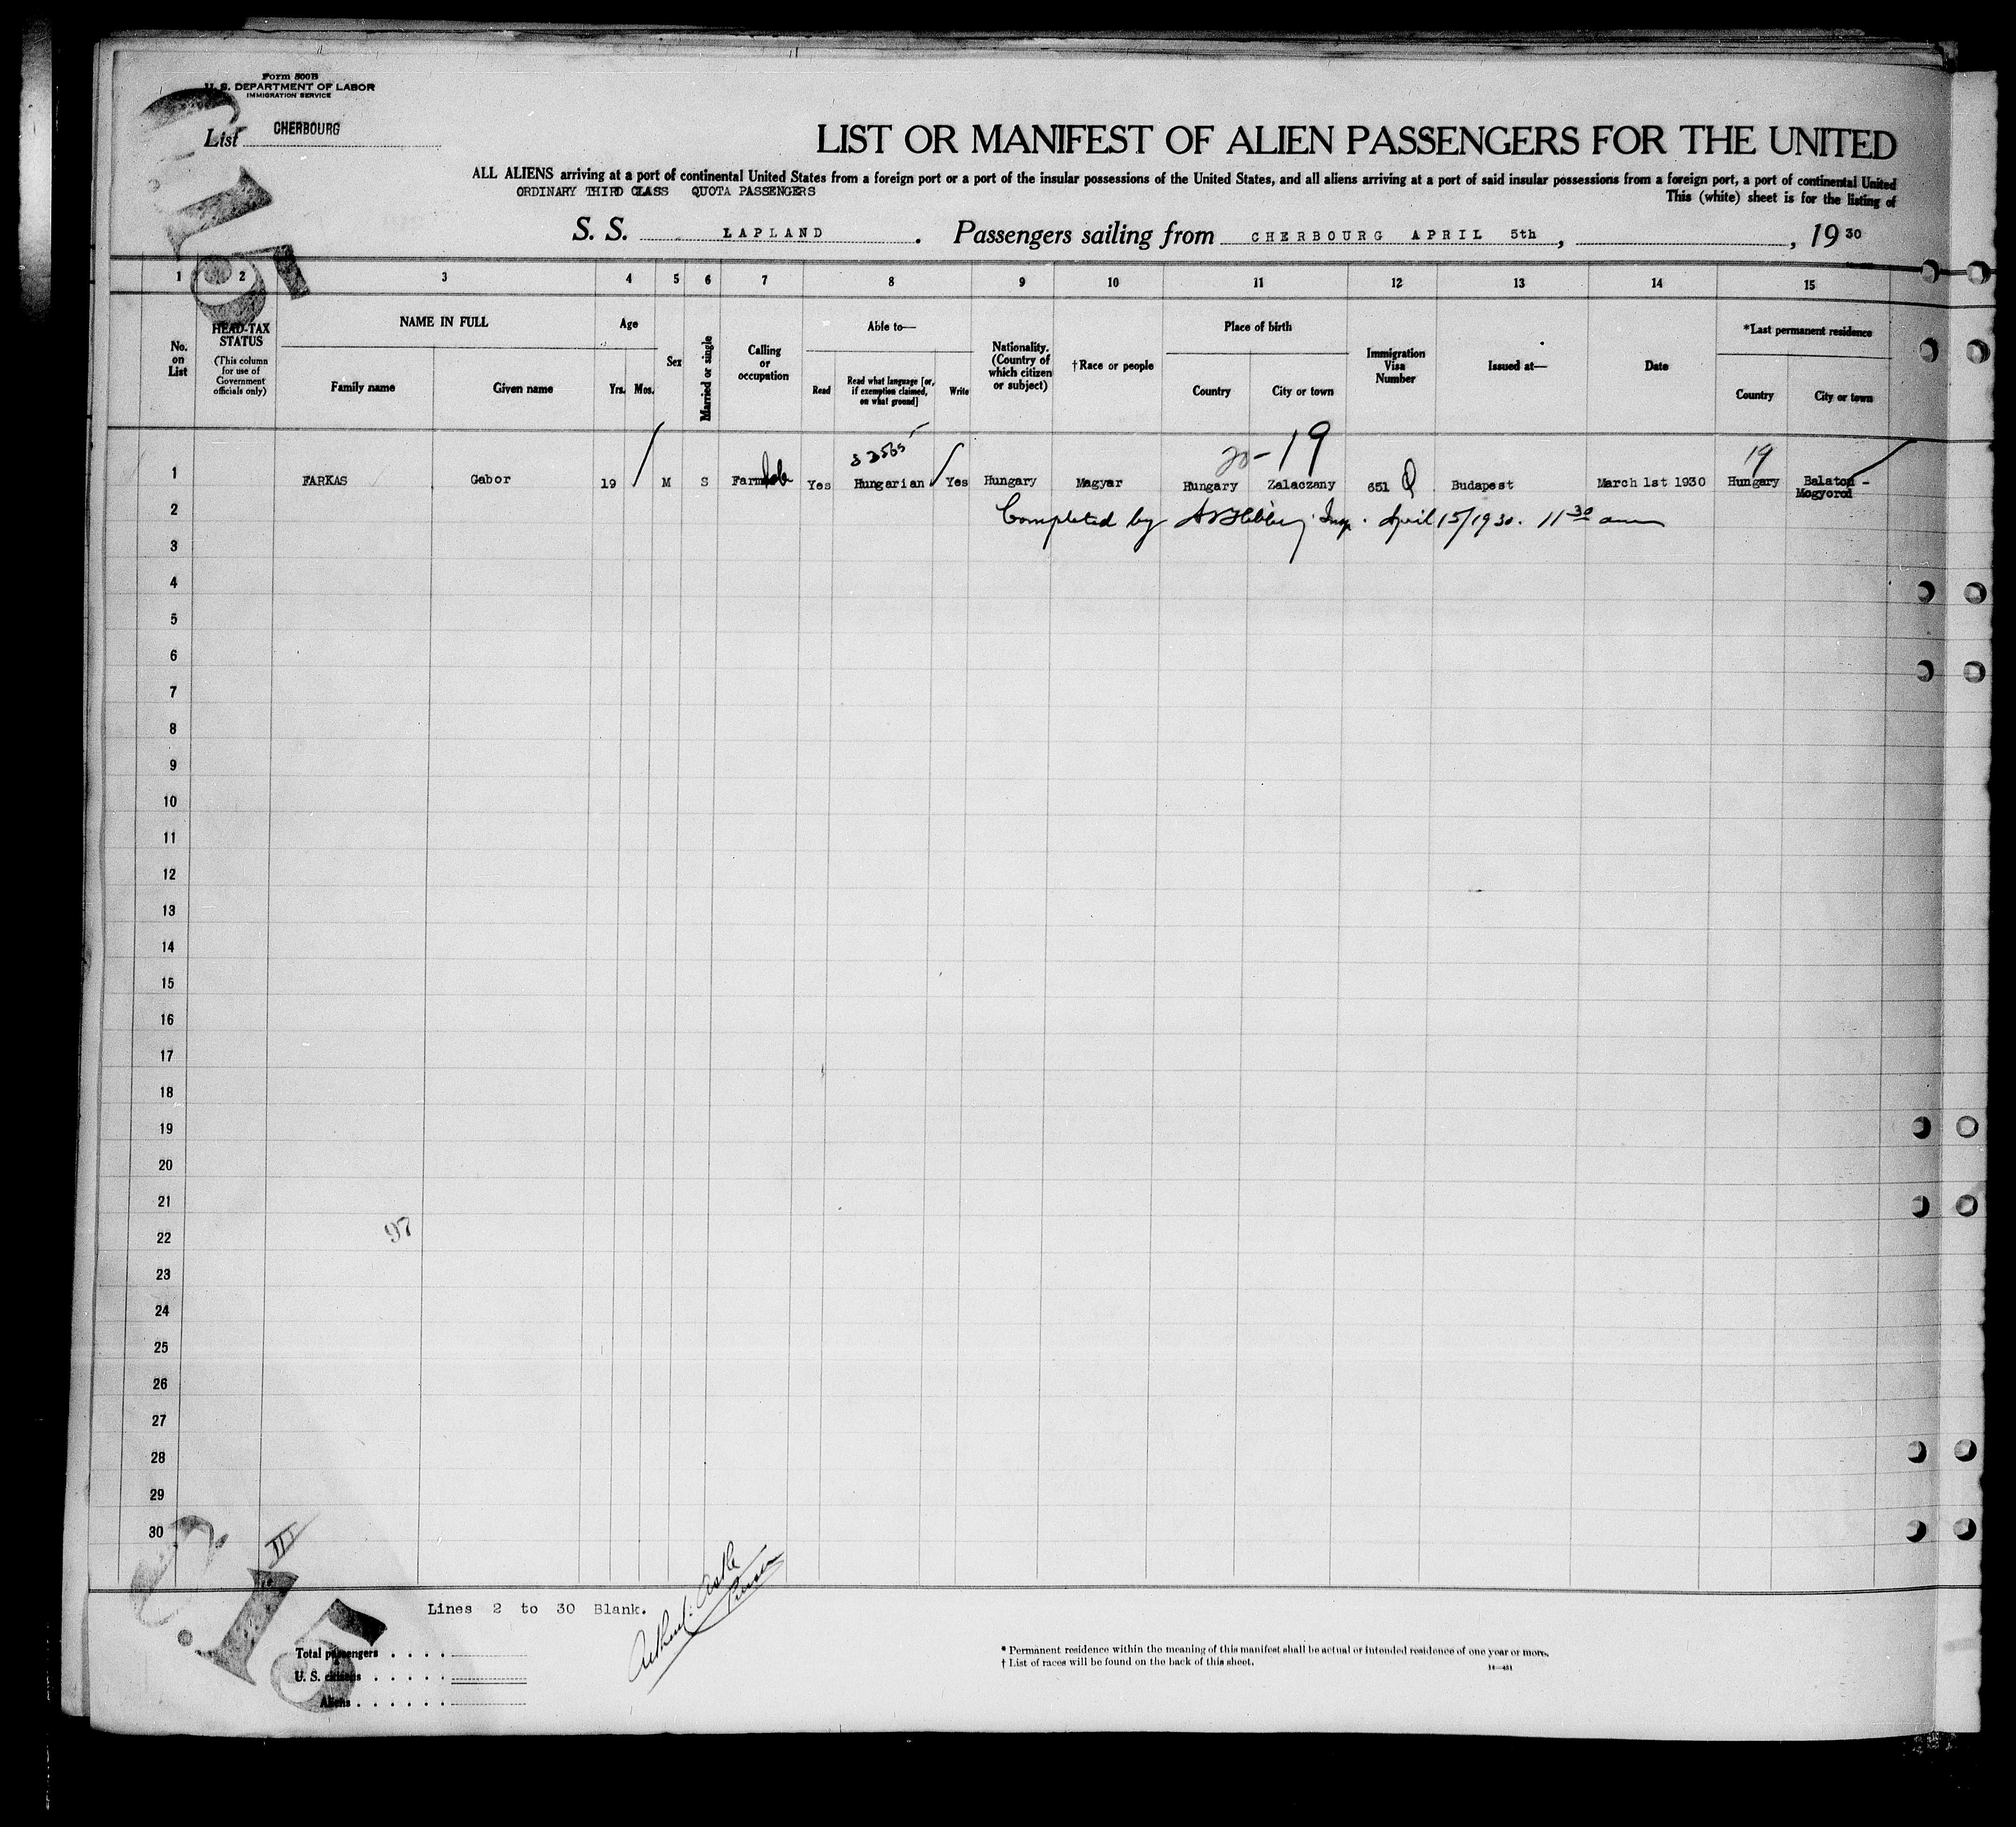 Form 500B
U. S. DEPARTMENT OF LABOR
IMMIGRATION SERVICE
List CHERBOURG
LIST OR MANIFEST OF ALIEN PASSENGERS FOR THE UNITED
ALL ALIENS arriving at a port of continental United States from a foreign port or a port of the insular possessions of the United States, and all aliens arriving at a port of said insular possessions from a foreign port, a port of continental United
ORDINARY THIRD CLASS QUOTA PASSENGERS This (white) sheet is for the listing of
S. S. LAPLAND. Passengers sailing from CHERBOURG APRIL 5th, , 1930
1 2 3 4 5 6 7 8 9 10 11 12 13 14 15
No. on List
HEAD-TAX STATUS
(This column for use of Government officials only)
NAME IN FULL
Family name
Given name
Age
Yrs. Mos.
Sex
Married or single
Calling or occupation
Able to—
Read
Read what language [or, if exemption claimed, on what ground]
Write
Nationality. (Country of which citizen or subject)
†Race or people
Place of birth
Country
City or town
Immigration Visa Number
Issued at—
Date
*Last permanent residence
Country
City or town
20-19 19
1 FARKAS Gabor 19 M S Farm Yes Hungarian Yes Hungary Magyar Hungary Zalaczany 651 Q Budapest March 1st 1930 Hungary Balaton - Mogyorod
2 Completed by Insp. April 15/1930. 11 30 am
3
4
5
6
7
8
9
10
11
12
13
14
15
16
17
18
19
20
21
22
97
23
24
25
26
27
28
29
30
III
15
Lines 2 to 30 Blank.
Total passengers . . . .
U. S. citizens . . . . .
Aliens . . . . . .
* Permanent residence within the meaning of this manifest shall be actual or intended residence of one year or more.
† List of races will be found on the back of this sheet.
14—431